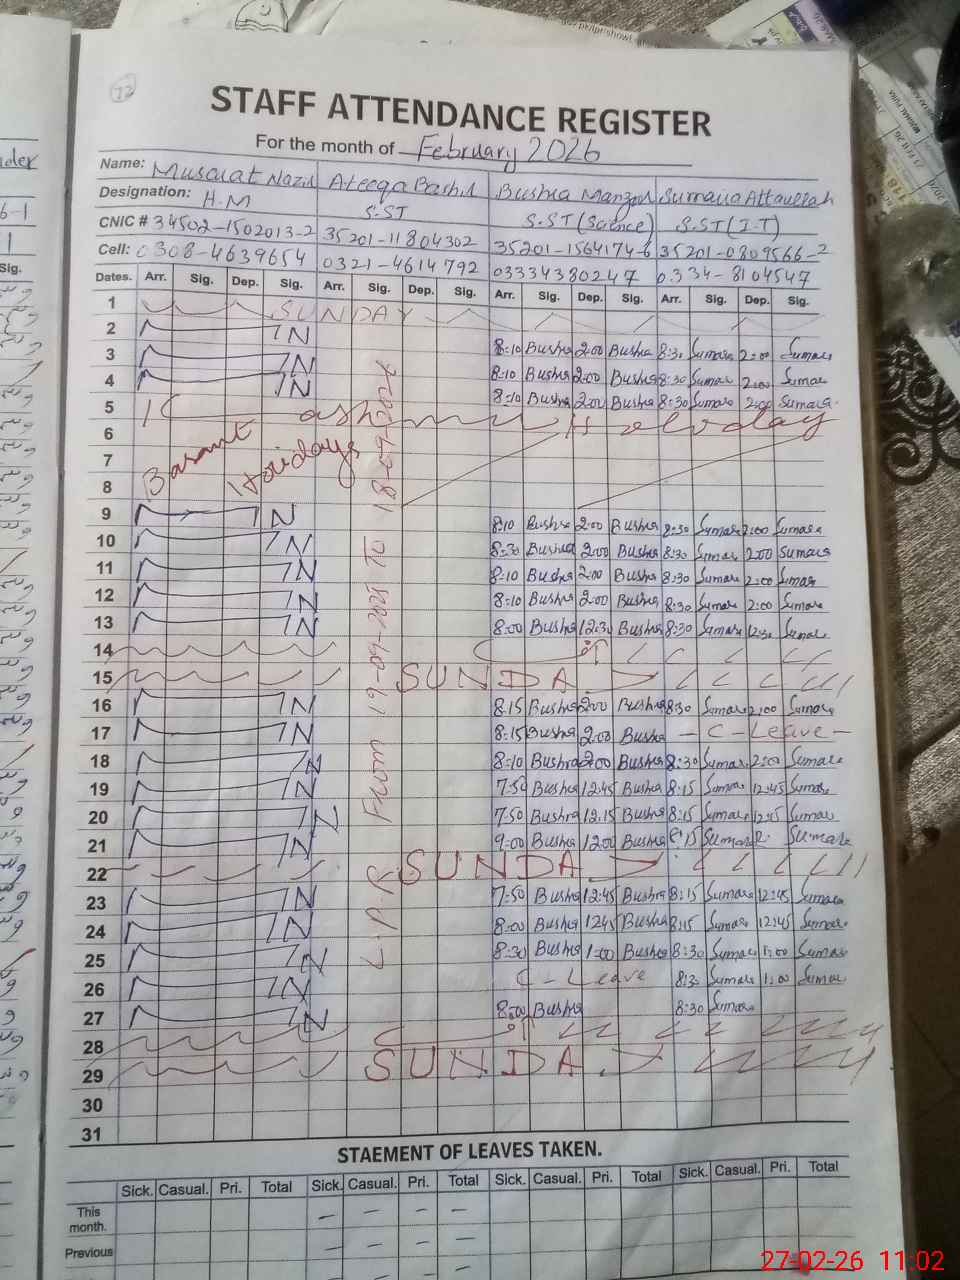 72
STAFF ATTENDANCE REGISTER
For the month of February 2026
Name: Musarat Nazir Ateeqa Bashir Bushra Manzoor Sumaira Attaullah
Designation: H.M S.ST S.ST (Science) S.ST (I.T)
CNIC # 34502-1502013-2 35201-11804302 35201-1564174-6 35201-0809566-2
Cell: 0308-4639654 0321-4614792 03334380247 0334-8104547
Dates. Arr. Sig. Dep. Sig. Arr. Sig. Dep. Sig. Arr. Sig. Dep. Sig. Arr. Sig. Dep. Sig.
1 SUNDAY
2 N
3 N 8:10 Bushra 2:00 Bushra 8:30 Sumara 2:00 Sumara
4 N 8:10 Bushra 2:00 Bushra 8:30 Sumara 2:00 Sumara
5 8:10 Bushra 2:00 Bushra 8:30 Sumara 2:00 Sumara
Kashmir Holiday
6
7 Basant Holidays
8
9 N 8:10 Bushra 2:00 Bushra 8:30 Sumara 2:00 Sumara
10 N 8:30 Bushra 2:00 Bushra 8:30 Sumara 2:00 Sumara
11 N 8:10 Bushra 2:00 Bushra 8:30 Sumara 2:00 Sumara
12 N 8:10 Bushra 2:00 Bushra 8:30 Sumara 2:00 Sumara
13 N 8:00 Bushra 12:30 Bushra 8:30 Sumara 12:30 Sumara
14
15 SUNDAY
16 N 8:15 Bushra 2:00 Bushra 8:30 Sumara 2:00 Sumara
17 N 8:15 Bushra 2:00 Bushra - C - Leave -
18 N 8:10 Bushra 2:00 Bushra 8:30 Sumara 2:00 Sumara
19 N 7:50 Bushra 12:45 Bushra 8:15 Sumara 12:45 Sumara
20 N 7:50 Bushra 12:15 Bushra 8:15 Sumara Sumara
21 N 9:00 Bushra 12:00 Bushra Sumara Sumara
22 SUNDAY
23 N 7:50 Bushra 12:45 Bushra 8:15 Sumara 12:45 Sumara
24 N 8:00 Bushra 12:45 Bushra 8:15 Sumara 12:45 Sumara
25 N 8:30 Bushra 1:00 Bushra 8:30 Sumara 1:00 Sumara
26 N C - Leave 8:30 Sumara 1:00 Sumara
27 N 8:00 Bushra 8:30 Sumara
28
29 SUNDAY
30
31
From 19-09-2025 TO
STAEMENT OF LEAVES TAKEN.
Sick. Casual. Pri. Total Sick. Casual. Pri. Total Sick. Casual. Pri. Total Sick. Casual. Pri. Total
This month. - - - -
Previous - - -
27-02-26 11:02